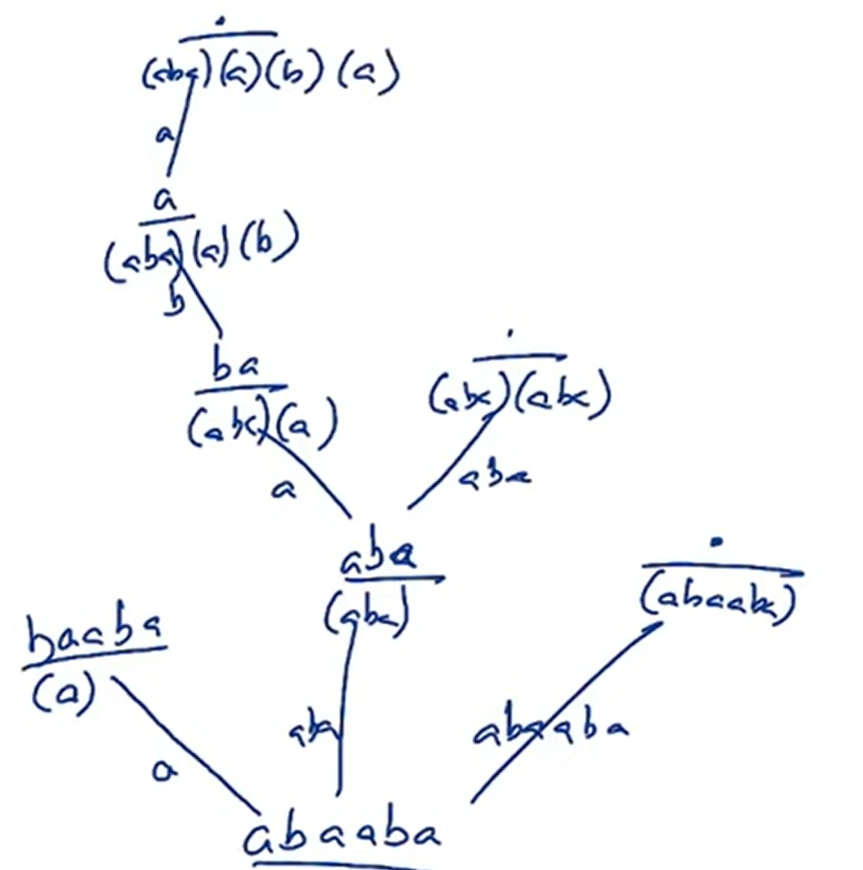 .
(aba)(a)(b)(a)
a
a
(aba)(a)(b)
b
ba
(aba)(a)
a
.
(aba)(aba)
aba
aba
(aba)
baaba
(a)
a
aba
.
(abaaba)
abaaba
abaaba